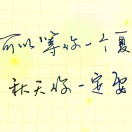 可以等你一个夏
秋天你一定要